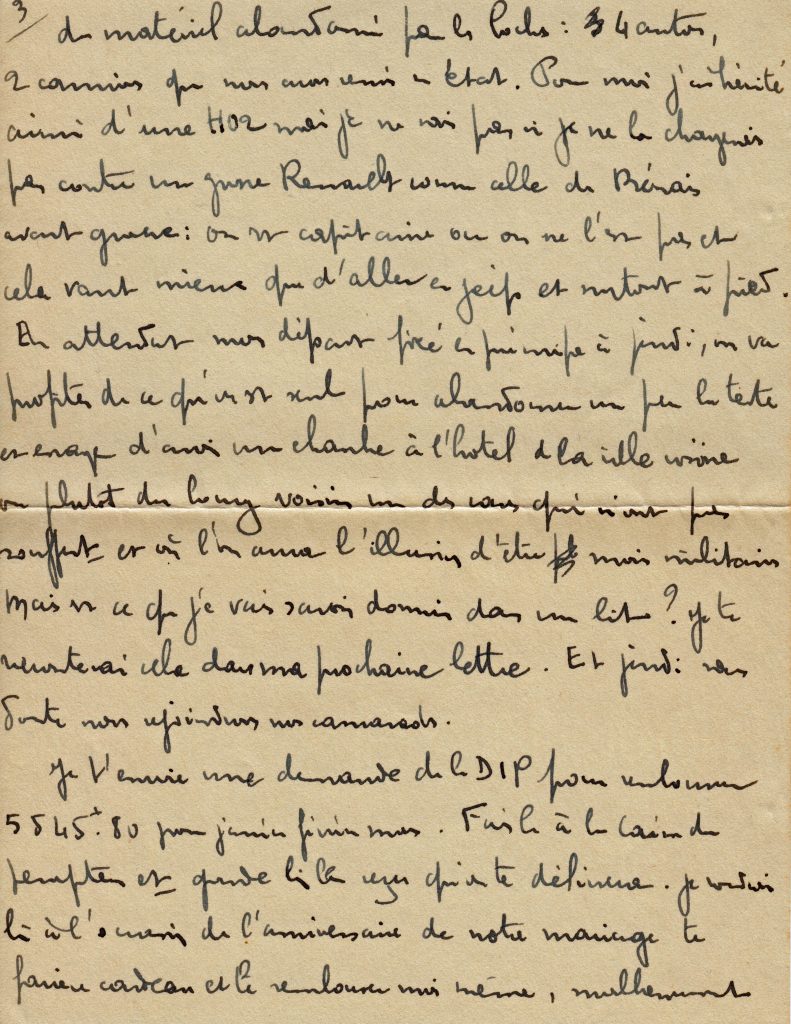 3/ du matériel abandonné par les boches : 4 autos,
2 camions que nous avons remis en état. Pour moi j'ai hérité
ainsi d'une 402 mais je ne sais pas si je ne la changerais
pas contre une grosse Renault comme celle de
avant guerre : on est capitaine ou on ne l'est pas et
cela vaut mieux que d'aller en jeep et surtout à pied.
En attendant mon départ fixé en principe à jeudi, on va
profiter de ce qu'on est seul pour abandonner un peu la tente
et essayer d'avoir une chambre à l'hotel de la ville voisine
ou plutot du bourg voisin un des rares qui n'ont pas
souffert et où l'on aura l'illusion d'être moins militaires
Mais est ce que je vais savoir dormir dans un lit ? Je te
raconterai cela dans ma prochaine lettre. Et jeudi sans
doute nous rejoindrons nos camarades.
Je t'envoie une demande de la DIP pour rembourser
5845f.80 pour janvier février mars. Fais le à la Caisse du
percepteur et garde bien le reçu qu'on te délivrera. Je voulais
à l'occasion de l'anniversaire de notre mariage te
faire cadeau et le rembourser moi même, malheureusement